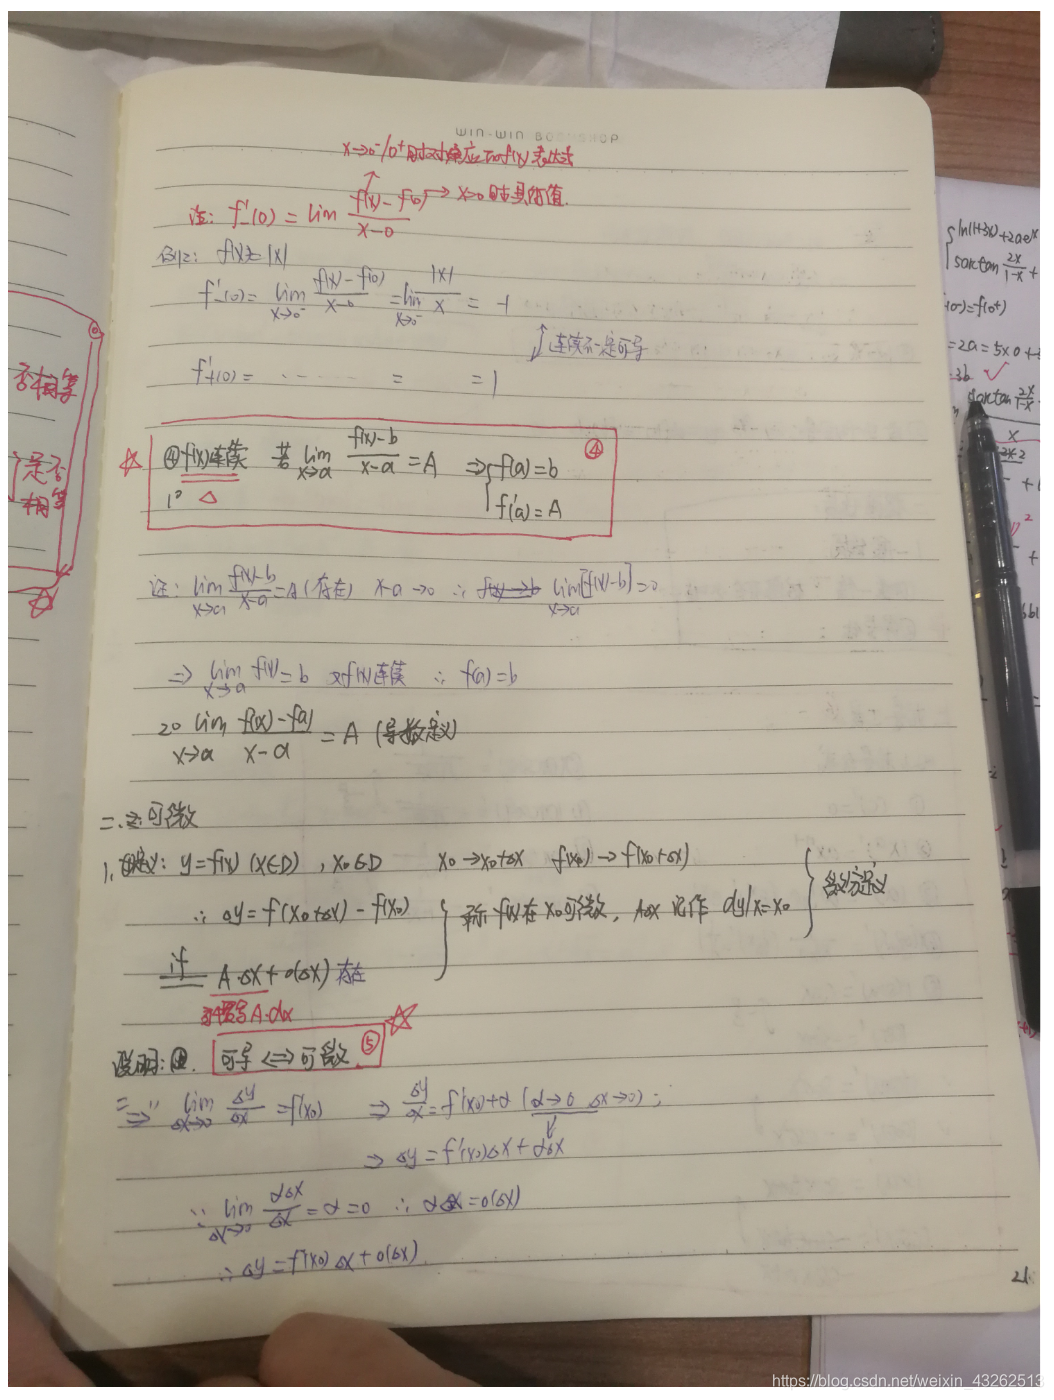 WIN-WIN BOOKSHOP
x→0⁻/0⁺时对应的f(x)表达式
注: f'₋(0) = lim (f(x) - f(0))/(x-0) → x→0时具体值.
例2: f(x) = |x|
f'₋(0) = lim x→0⁻ (f(x) - f(0))/(x-0) = lim x→0⁻ |x|/x = -1
连续不一定可导
f'₊(0) = ...... = = 1
④ f(x)连续 若 lim x→a (f(x)-b)/(x-a) = A ⇒ { f(a)=b ④
1° △ f'(a) = A
注: lim x→a (f(x)-b)/(x-a) = A (存在) x-a→0 ∴ f(x)→b lim x→a [f(x)-b]=0
⇒ lim x→a f(x) = b 又f(x)连续 ∴ f(a)=b
20 lim x→a (f(x)-f(a))/(x-a) = A (导数定义)
二. 可微
1. 定义: y=f(x) (x∈D), x₀∈D x₀→x₀+Δx f(x₀)→f(x₀+Δx)
∴ Δy = f(x₀+Δx) - f(x₀) } 称f(x)在x₀可微, AΔx 记作 dy|x=x₀ 微分定义
if A·Δx + o(Δx) 存在
A·dx
说明: ①. 可导 <=> 可微. ⑤
"⇒" lim Δx→0 Δy/Δx = f'(x₀) ⇒ Δy/Δx = f'(x₀)+α (α→0 Δx→0);
⇒ Δy = f'(x₀)Δx + αΔx
∵ lim Δx→0 αΔx/Δx = α = 0 ∴ αΔx = o(Δx)
∴ Δy = f'(x₀)Δx + o(Δx).
21
否相等
是否
相等
ln(1+3x)+2ae^x
sarctan 2x/(1-x) +
(0-)=f(0+)
=2a=5×0+3
3b ✓
https://blog.csdn.net/weixin_43262513